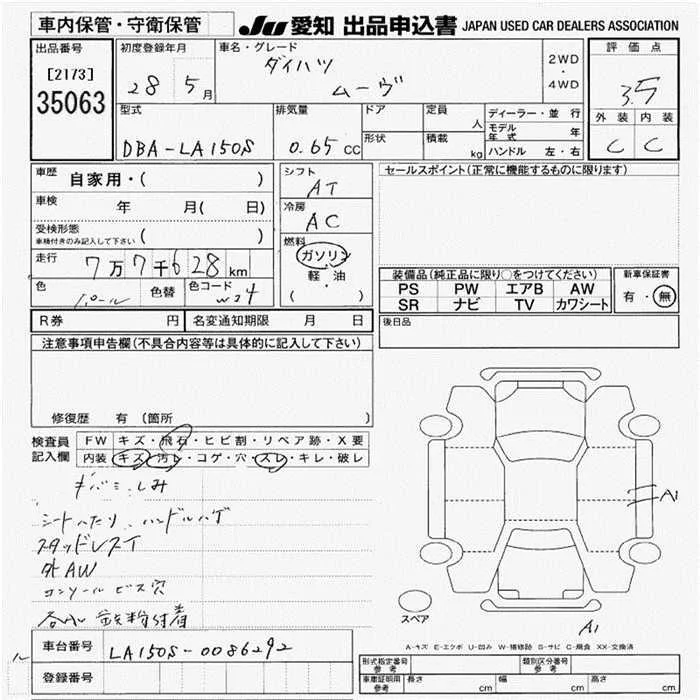 車内保管・守衛保管
JU 愛知 出品申込書 JAPAN USED CAR DEALERS ASSOCIATION
出品番号
[2173]
35063
初度登録年月
28 5月
車名・グレード
ダイハツ
ムーヴ
2WD
・
4WD
評価点
3.5
外装 内装
C C
型式
DBA-LA150S
排気量
0.65 CC
ドア
形状
定員
人
積載
kg
ディーラー・並行
モデル年式 年
ハンドル 左・右
車歴
自家用・( )
車検
年 月( 日)
受検形態
車検付きのみ記入して下さい ( )
走行
7万7千628km
色
パール
色替
色コード
W24
シフト
AT
冷房
AC
燃料
ガソリン
軽油
( )
セールスポイント(正常に機能するものに限ります)
装備品(純正品に限り○をつけてください)
PS PW エアB AW
SR ナビ TV カワシート
新車保証書
有・無
R券 円
名変通知期限 月 日
後日品
注意事項申告欄(不具合内容等は具体的に記入して下さい)
修復歴 有 (箇所
検査員
記入欄
FW キズ・飛石・ヒビ割・リペア跡・X要
内装 キズ・汚レ・コゲ・穴・スレ・キレ・破レ
キバミ、しみ
シートヘたり、ハンドルハゲ
スタッドレスT
外AW
コンソール ビス穴
各部 鉄粉付着
A1
A1
スペア
A-キズ E-エクボ U-凹み W-補修跡 S-サビ C-腐食 XX-交換済
車台番号
LA150S-0086292
登録番号
ル
形式指定番号
参考
類別区分番号
参考
車庫証明用
参考
長さ cm 幅 cm 高さ cm